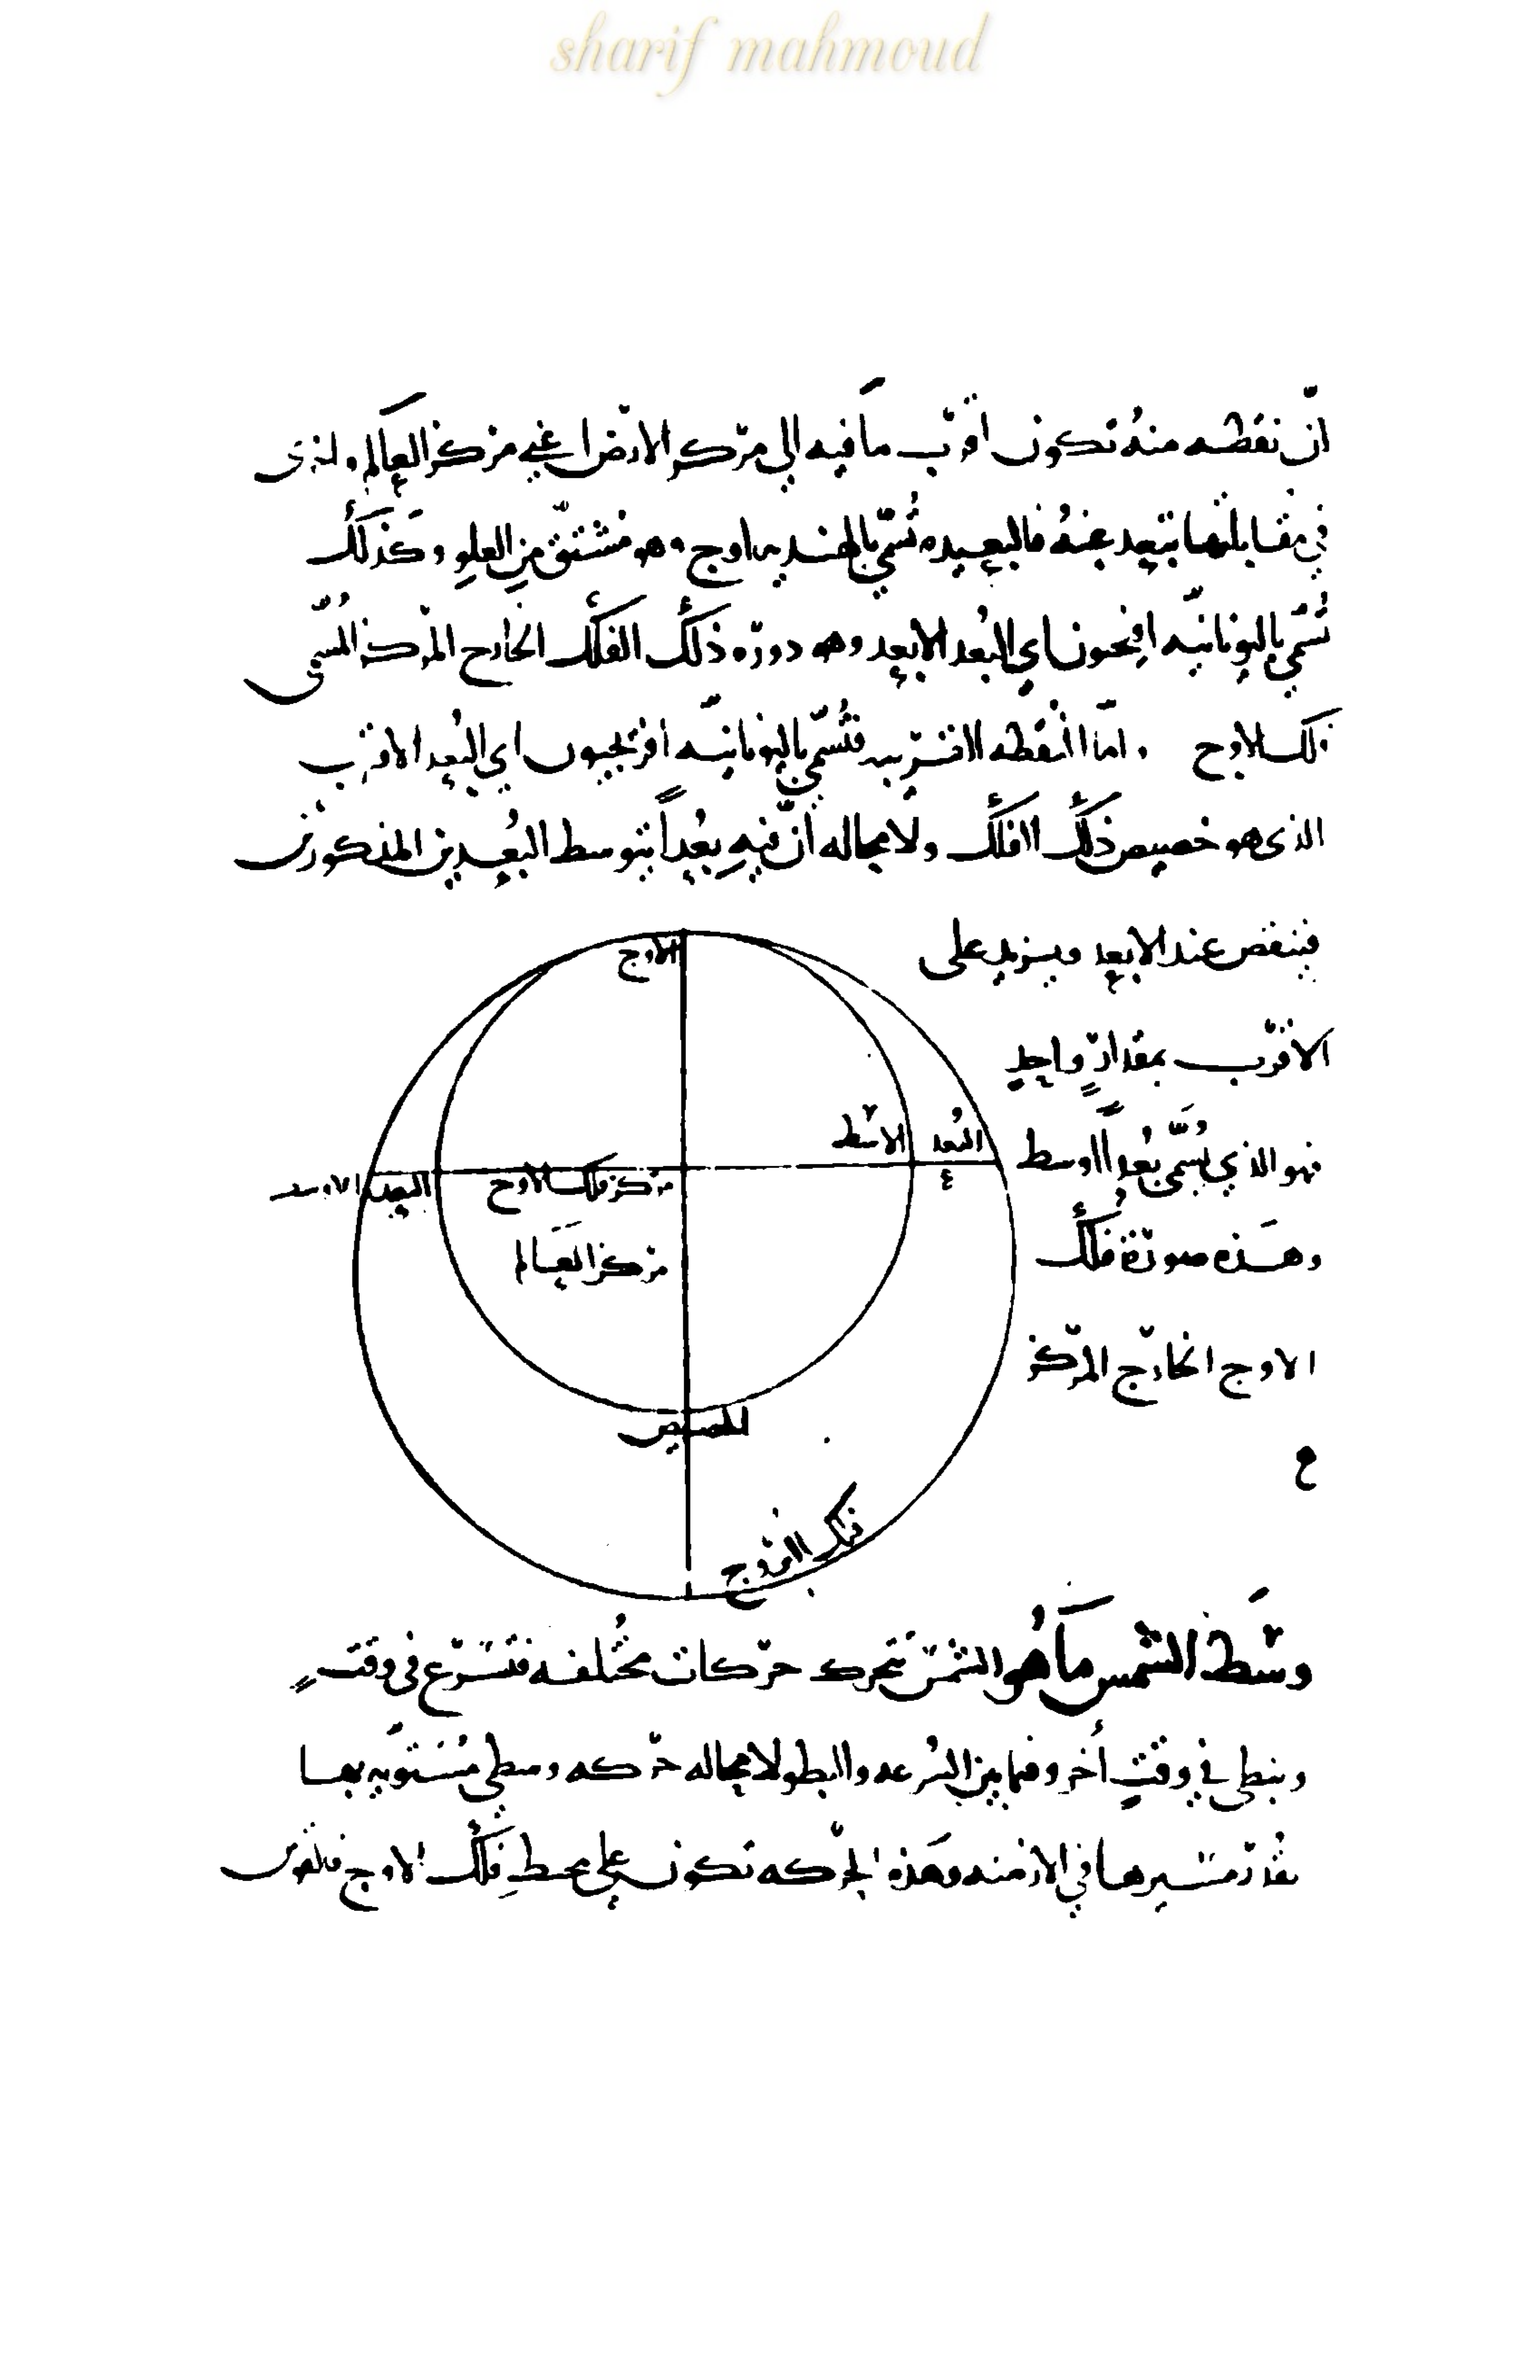 sharif mahmoud
انّ نقطه منهُ تكون اقرب ما فيه الى مركز الارض اعني مركز العالم واخرى
في مقابلتها تبعد عنهُ فالبعيده تُسمّي بالهنديه اوج وهو مشتقّ من العلو وكذلك
تُسمّي باليونانيّه افيجيون اي البُعد الابعد وهو دورَه ذلك الفلك الخارج المركز المُسمّى
فلك الاوج واما النقطه القريبه فتُسمّي باليونانيّه افريجيون اي البُعد الاقرب
الذى هو حضيض ذلك الفلك ولا محاله انّ فيهِ بعُداً يتوسط البُعدين المذكورين
فينقص عند الابعد ويزيد على
الاقرب بمقدارٍ واحدٍ
فهو الذي يُسمّى بُعداً اوسط
وهذه صورة فلك
الاوج الخارج المركز
ع
الاوج
البُعد الاوسط
٤
البعد الاوسط
مركز فلك الاوج
مركز العَالم
الحضيض
فلك البروج
وسَط الشمس مَا هُو الشمس تتحرك حركات مختُلفه فتسرع فى وقتٍ
وتبطى في وقتٍ أخر وفيما بين السُرعه والبطو لا محاله حركه وسطى مُستَويه بها
يقُدر مسَيرها في الازمنه وهَذه الحركه تكون على محيط فلك الاوج فلتقوس